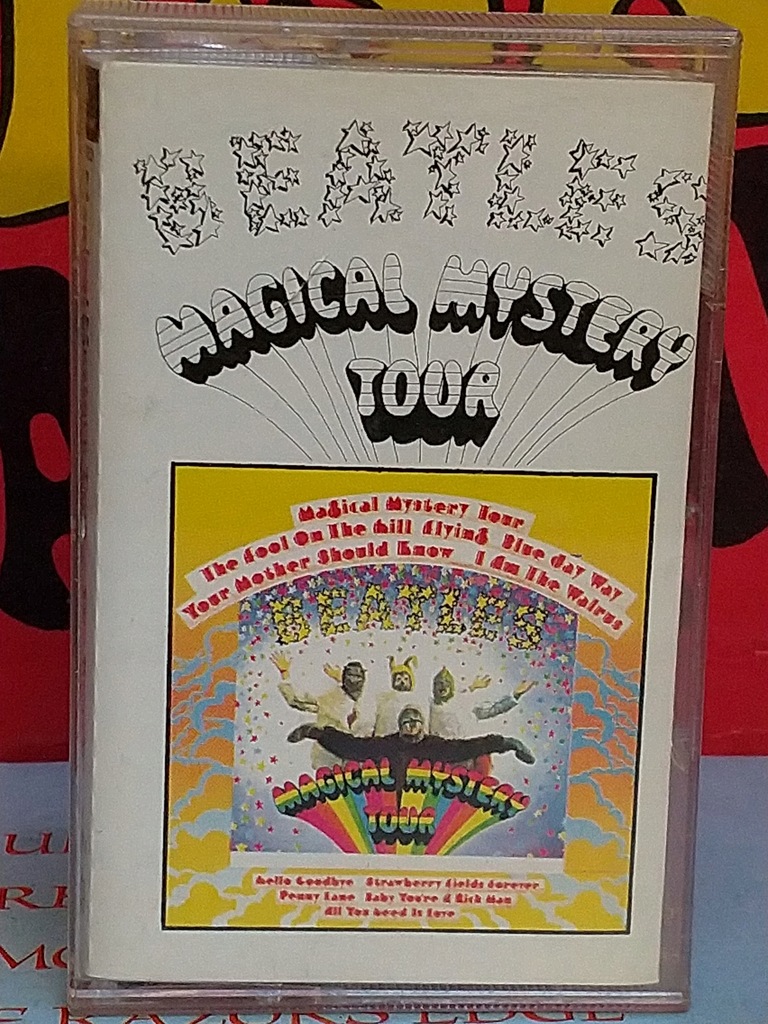 BEATLES
MAGICAL MYSTERY
TOUR
Magical Mystery Tour
The Fool On The Hill Flying Blue Jay Way
Your Mother Should Know I Am The Walrus
BEATLES
MAGICAL MYSTERY
TOUR
Hello Goodbye Strawberry Fields Forever
Penny Lane Baby You're A Rich Man
All You Need Is Love
RAZORS EDGE